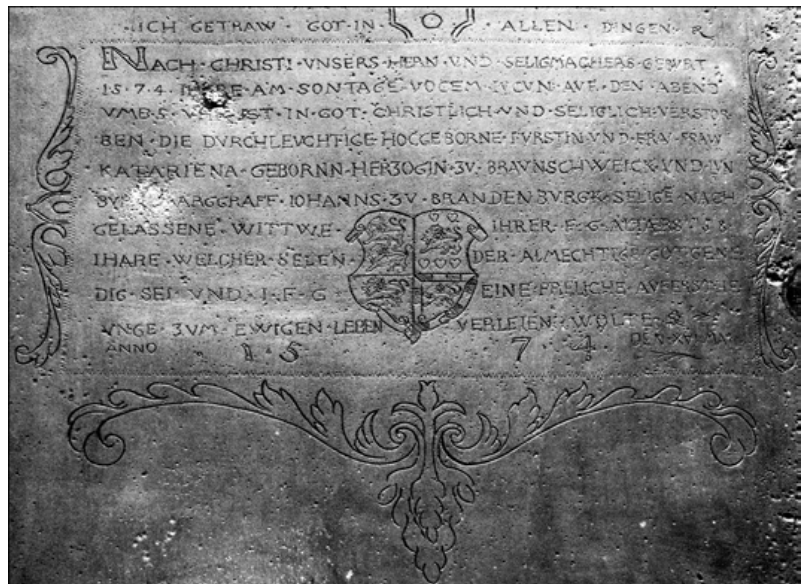 ICH GETRAW · GOT · IN · ALLEN · DINGEN ·
NACH · CHRISTI · VNSERS · HERN · VND · SELIGMACHERS · GEBVRT ·
15·74· IHARE · AM · SONTAGE · VOCEM · IVCVN · AVF · DEN · ABEND
VMB · 5 · IST · IN · GOT · CHRISTLICH · VND · SELIGLICH · VERSTOR
BEN · DIE · DVRCHLEVCHTIGE · HOCGEBORNE · FVRSTIN · VND · FRAV · FRAW
KATARIENA · GEBORNN · HERZOGIN · ZV · BRAVNSCHWEICK · VND · LVN
IOHANNS · ZV · BRANDENBVRGK · SELIGE · NACH
GELASSENE · WITTWE · IHRER · F · G · ALTERS
IHARE · WELCHER · SELEN · DER · ALMECHTIGE · GOT · GENE
DIG · SEI · VND · I · F · G · EINE · FRELICHE ·
VNGE · ZVM · EWIGEN · LEBEN VERLEIEN · WOLTE
ANNO 1 5 7 4 DEN